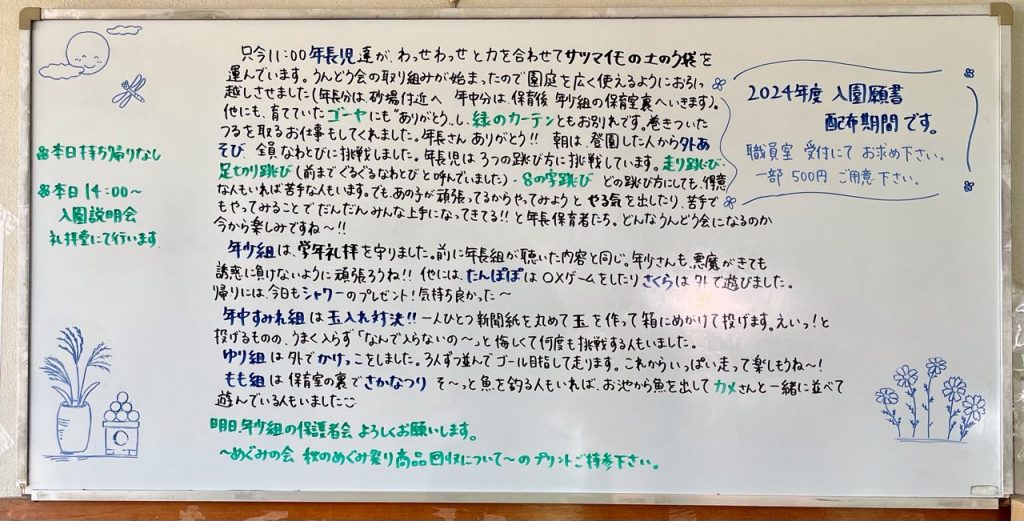 本日持ち帰りなし
本日14:00〜
入園説明会
礼拝堂にて行います
只今11:00 年長児達が、わっせわっせと力を合わせてサツマイモの土のう袋を
運んでいます。うんどう会の取り組みが始まったので園庭を広く使えるようにお引っ
越しさせました(年長分は、砂場付近へ 年中分は、保育後 年少組の保育室裏へいきます)。
他にも、育てていたゴーヤにも"ありがとう"し、緑のカーテンともお別れです。巻きついた
つるを取るお仕事もしてくれました。年長さん ありがとう!! 朝は、登園した人から外あ
そび、全員なわとびに挑戦しました。年長児は3つの跳び方に挑戦しています。走り跳び・
足切り跳び(前までぐるぐるなわとびと呼んでいました)・8の字跳び どの跳び方にしても、得意
な人もいれば苦手な人もいます。でも、あの子が頑張ってるからやってみようと やる気を出したり、苦手で
もやってみることで だんだんみんな上手になってきてる!! と年長保育者たち。どんなうんどう会になるのか
今から楽しみですね〜!!
年少組は、学年礼拝を守りました。前に年長組が聴いた内容と同じ。年少さんも、悪魔がきても
誘惑に負けないように頑張ろうね!! 他には、たんぽぽは〇×ゲームをしたり さくらは外で遊びました。
帰りには、今日もシャワーのプレゼント!気持ち良かった〜
年中すみれ組は玉入れ対決!! 一人ひとつ新聞紙を丸めて玉を作って箱にめがけて投げます。えいっ!と
投げるものの、うまく入らず「なんで入らないの〜」と悔しくて何度も挑戦する人もいました。
ゆり組は外でかけっこをしました。3人ずつ並んでゴール目指して走ります。これからいっぱい走って楽しもうね〜!
もも組は保育室の裏でさかなつり そ〜っと魚を釣る人もいれば、お池から魚を出してカメさんと一緒に並べて
遊んでいる人もいました
明日、年少組の保護者会 よろしくお願いします。
〜めぐみの会 秋のめぐみ祭り商品回収について〜のプリントご持参下さい。
2024年度 入園願書
配布期間です。
職員室 受付にて お求め下さい。
一部 500円 ご用意下さい。